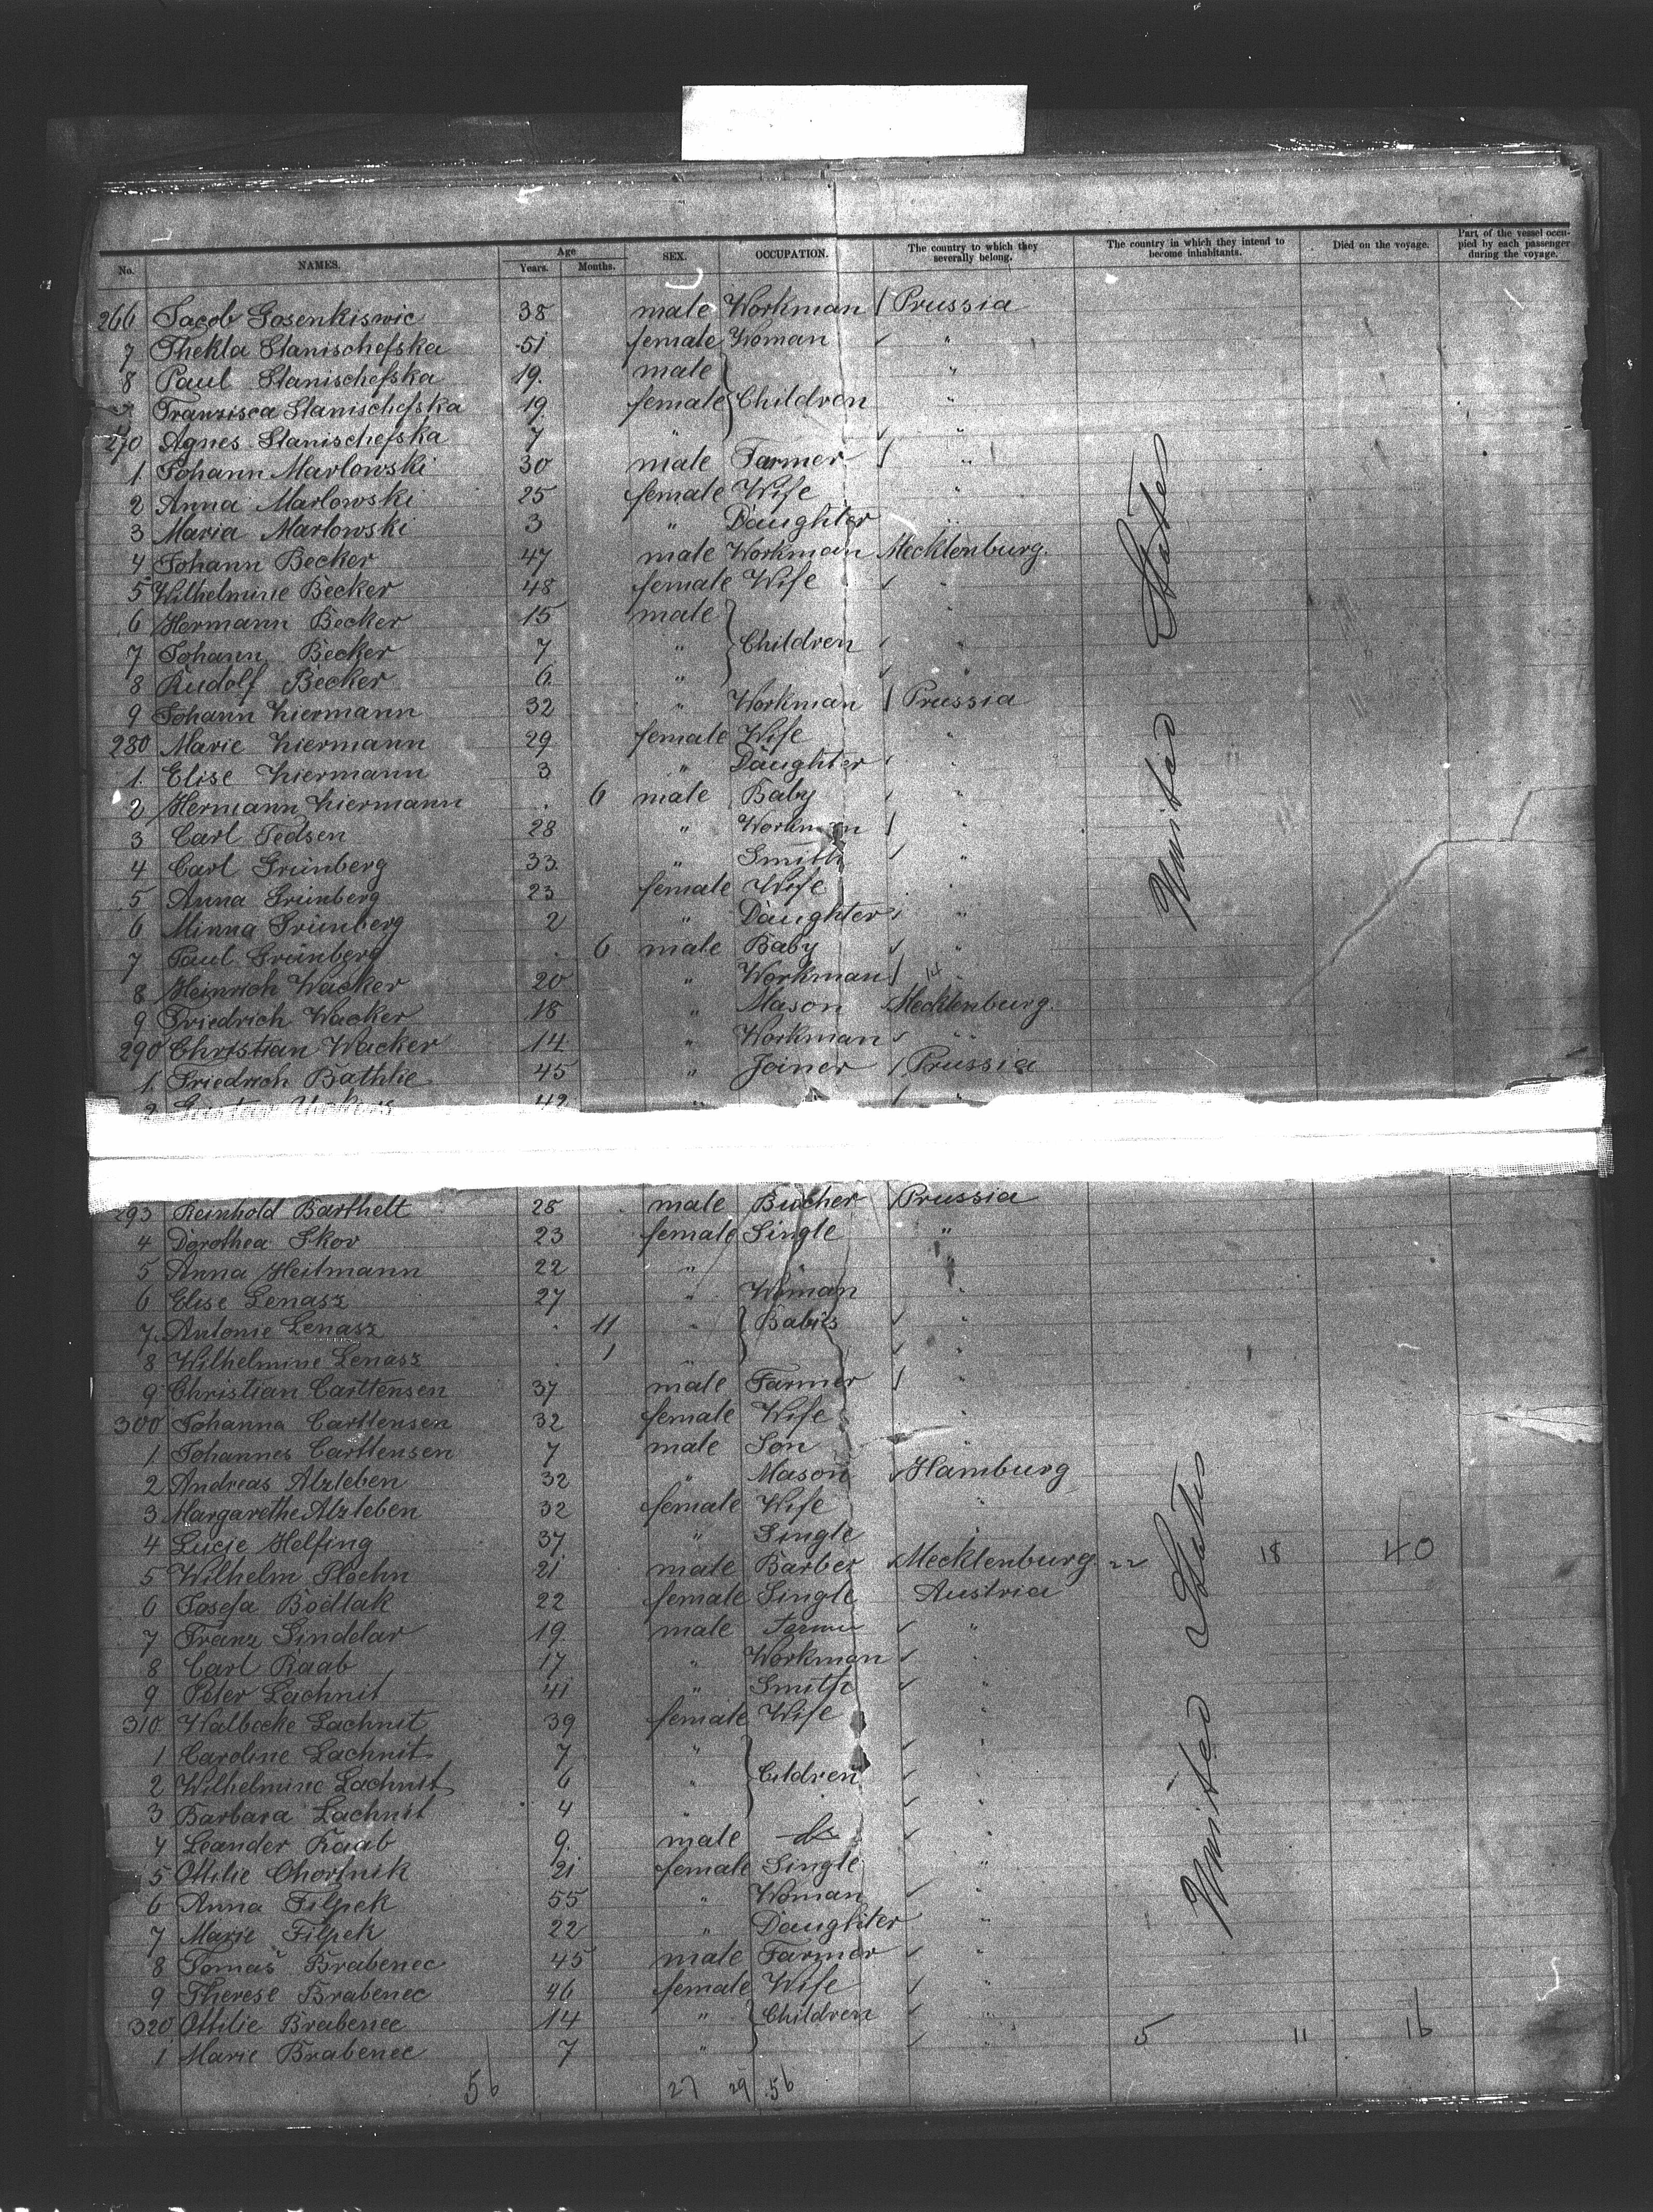 No. NAMES. Age Years. Months. SEX. OCCUPATION. The country to which they severally belong. The country in which they intend to become inhabitants. Died on the voyage. Part of the vessel occupied by each passenger during the voyage.
266 Jacob Gosenkiswic 38 male Workman Prussia
7 Thekla Stanischefska 51 female Woman "
8 Paul Stanischefska 19. male "
9 Franzisca Stanischefska 19. female Children "
270 Agnes Stanischefska 7 " "
1. Johann Marlowski 30 male Farmer "
2 Anna Marlowski 25 female Wife "
3 Maria Marlowski 3 " Daughter "
4 Johann Becker 47 male Workman Mecklenburg.
5 Wilhelmine Becker 48 female Wife "
6 Hermann Becker 15 male "
7 Johann Becker 7 " Children "
8 Rudolf Becker 6. " "
9 Johann Liermann 32 " Workman Prussia
280 Marie Liermann 29 female Wife "
1. Elise Liermann 3 " Daughter "
2 Hermann Liermann . 6 male Baby "
3 Carl Jedsen 28 " Workman "
4 Carl Grünberg 33. " Smith "
5 Anna Grünberg 23 female Wife "
6 Minna Grünberg 2 " Daughter "
7 Paul Grünberg . 6 male Baby "
8 Heinrich Wacker 20 " Workman 14 "
9 Friedrich Wacker 18 " Mason Mecklenburg.
290 Christian Wacker 14 " Workman "
1. Friedrich Bathke 45 " Joiner Prussia
2 Gustav 42 " "
United States
293 Reinhold Barthelt 28 male Bucher Prussia
4 Dorothea Skov 23 female Single "
5 Anna Heitmann 22 " " "
6 Elise Lenasz 27 " Woman "
7. Antonie Lenasz . 11 " Babies "
8 Wilhelmine Lenasz . 1 " "
9 Christian Carttensen 37 male Farmer "
300 Johanna Carttensen 32 female Wife "
1 Johannes Carttensen 7 male Son
2 Andreas Alzleben 32 " Mason Hamburg
3 Margarethe Alzleben 32 female Wife "
4 Lucie Helfing 37 " Single "
5 Wilhelm Plochn 21 male Barber Mecklenburg. 22 18 40
6 Josefa Bodlak 22 female Single Austria
7 Franz Sindelar 19. male "
8 Carl Raab 17 " Workman "
9 Peter Lachnit 41 " Smith "
310. Walbocke Lachnit 39 female Wife "
1 Caroline Lachnit 7 " "
2 Wilhelmine Lachnit 6 " Cildren "
3 Barbara Lachnit 4 " "
4 Leander Raab 9. male do "
5 Ottilie Chorfnik 21 female Single "
6 Anna Filpek 55 " Woman "
7 Marie Filpek 22 " Daughter "
8 Tomaš Brabenec 45 male Farmer "
9 Therese Brabenec 46 female Wife "
320. Ottilie Brabenec 14 " Children "
1 Marie Brabenec 7 " " 5 11 16
United States
56 27 29 56